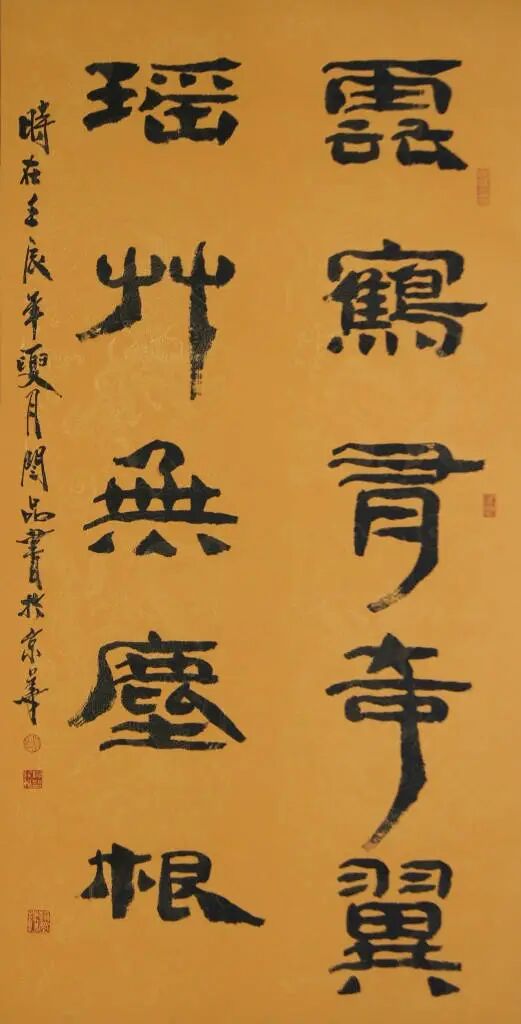 雲鶴有奇翼
瑶艸無塵根
時在壬辰年夏月閆品書於京華